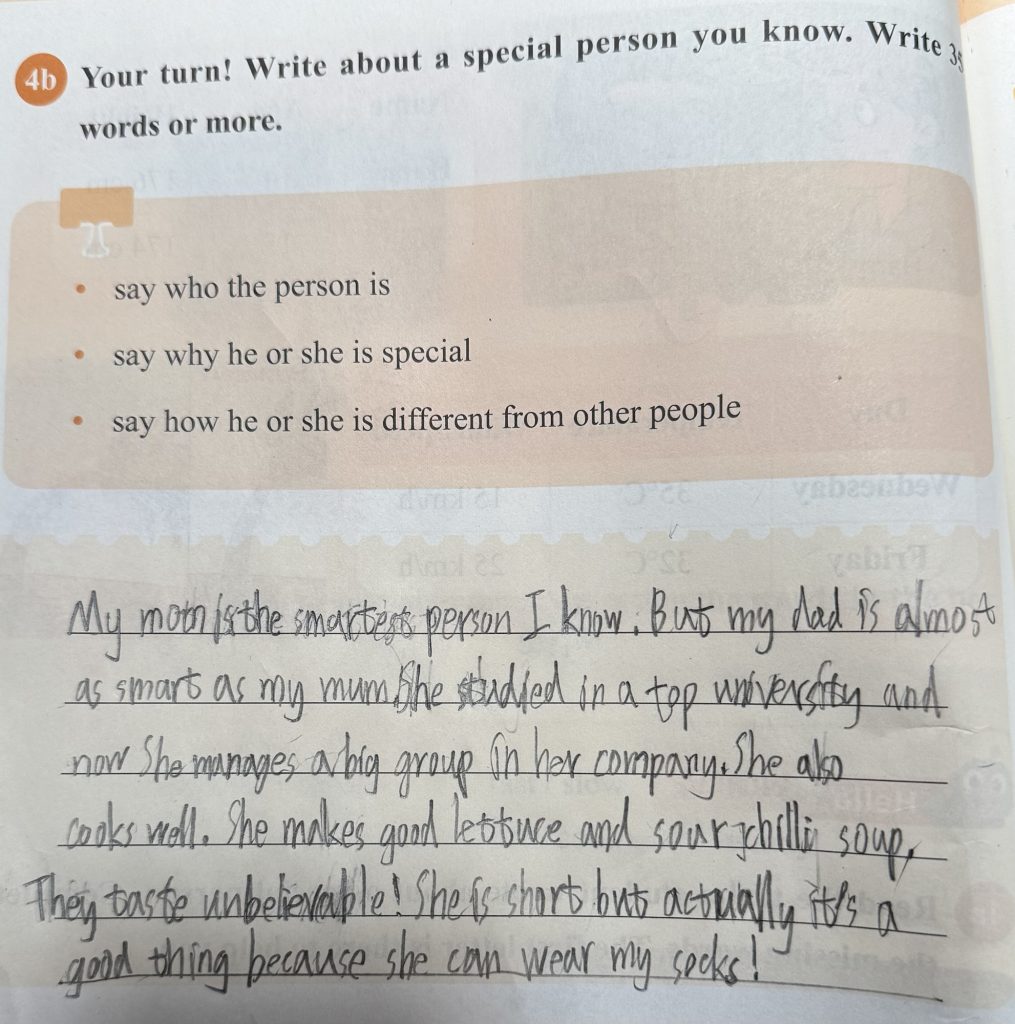 4b Your turn! Write about a special person you know. Write 35
words or more.
• say who the person is
• say why he or she is special
• say how he or she is different from other people
My mom is the smartest person I know. But my dad is almost
as smart as my mum. She studied in a top university and
now She manages a big group in her company. She also
cooks well. She makes good lettuce and sour chilli soup.
They taste unbelievable! She is short but actually it's a
good thing because she can wear my socks!